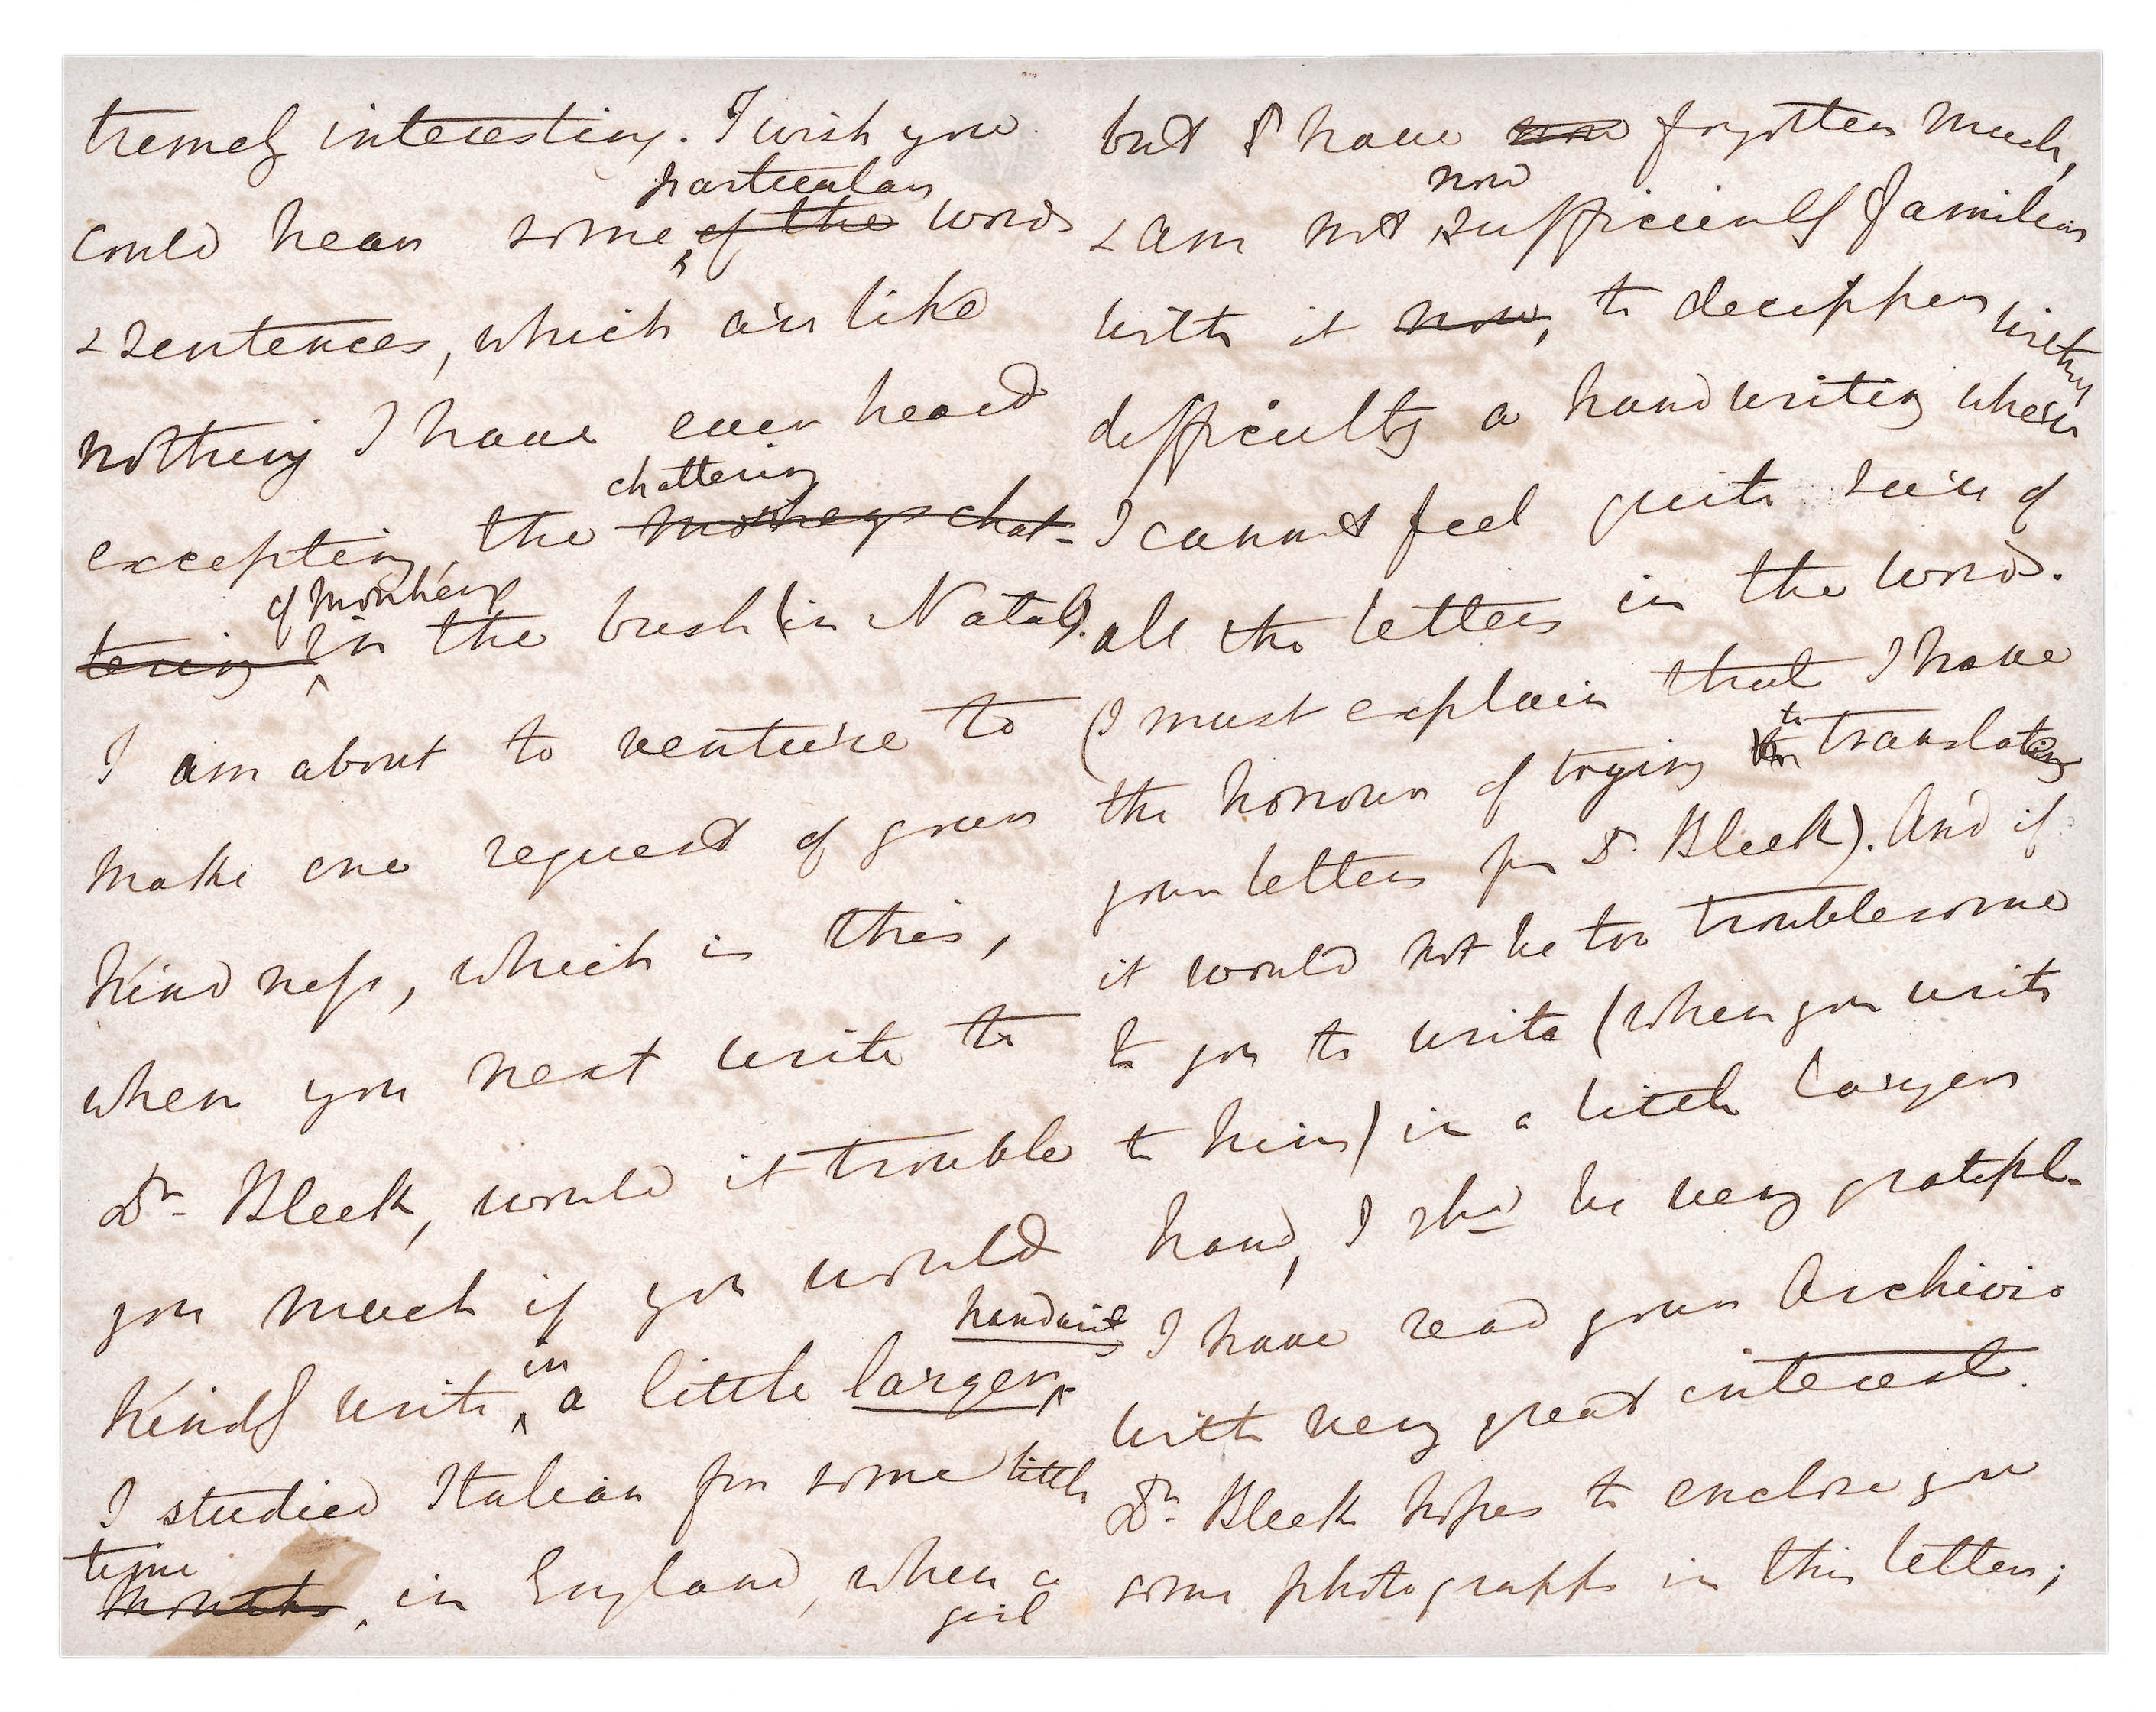 tremely interesting. I wish you
particular
could hear some of the words
& sentences, which are like
nothing I have ever heard
chattering
excepting the monkeys chat-
of monkeys
tering in the bush (in Natal).
I am about to venture to
make one request of your
kindness, which is this,
when you next write to
Dr. Bleek, would it trouble
you much if you would
handwrit
kindly write in a little larger
I studied Italian for some little
time
months, in England, when a
girl
but I have now forgotten much,
now
& am not sufficiently familiar
with it now, to decipher without
difficulty a handwriting where
I cannot feel quite sure of
all the letters in the words.
(I must explain that I have
to
the honour of trying translating
your letters for D. Bleek). And if
it would not be too troublesome
to you to write (when you write
to him) in a little larger
hand, I shd be very grateful.
I have read your Archivio
with very great interest.
Dr. Bleek hopes to enclose you
some photographs in this letter;